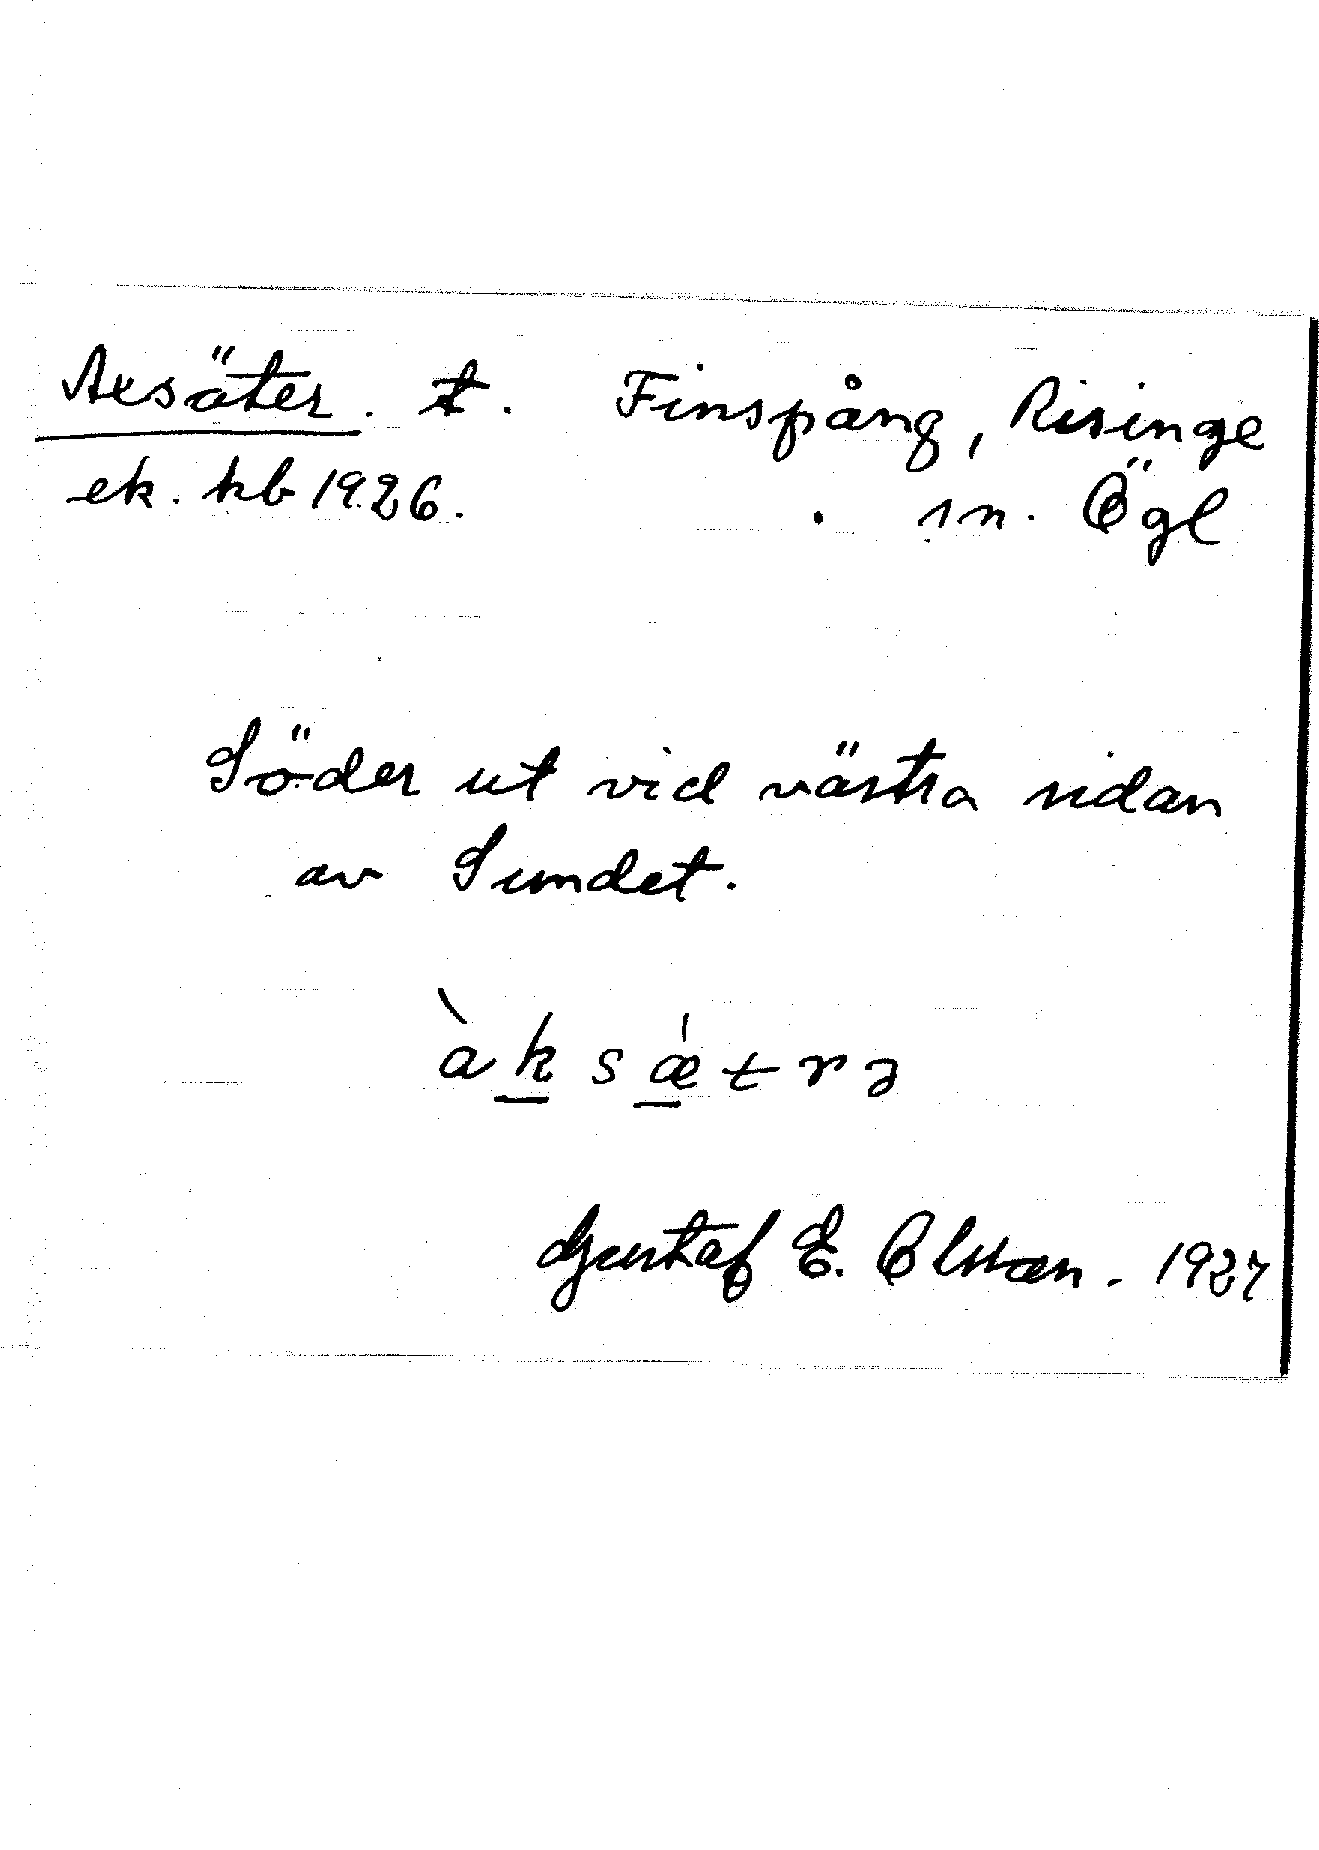 Axsäter. t. Finspång, Risinge
ek. kb 1926. sn. Ögl
Söder ut vid västra sidan
av Sundet.
àksǽtrə
Gustaf E. Olsson. 1927